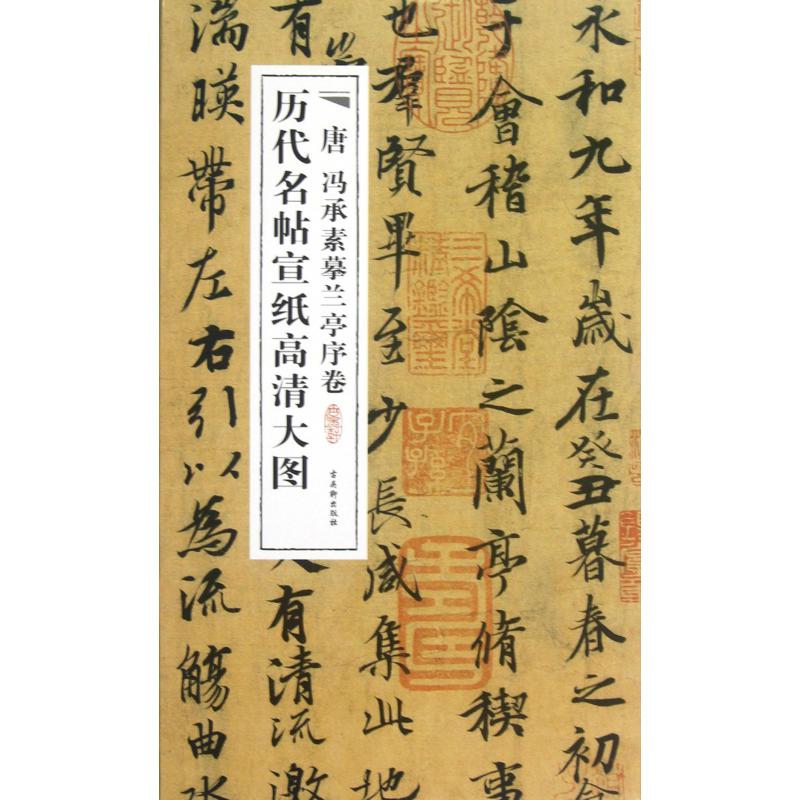 永和九年歲在癸丑暮春之初
于會稽山陰之蘭亭脩稧事
也群賢畢至少長咸集此地
有
有清流激
湍暎帶左右引以為流觴曲水
唐 冯承素摹兰亭序卷
历代名帖宣纸高清大图
古吴轩出版社